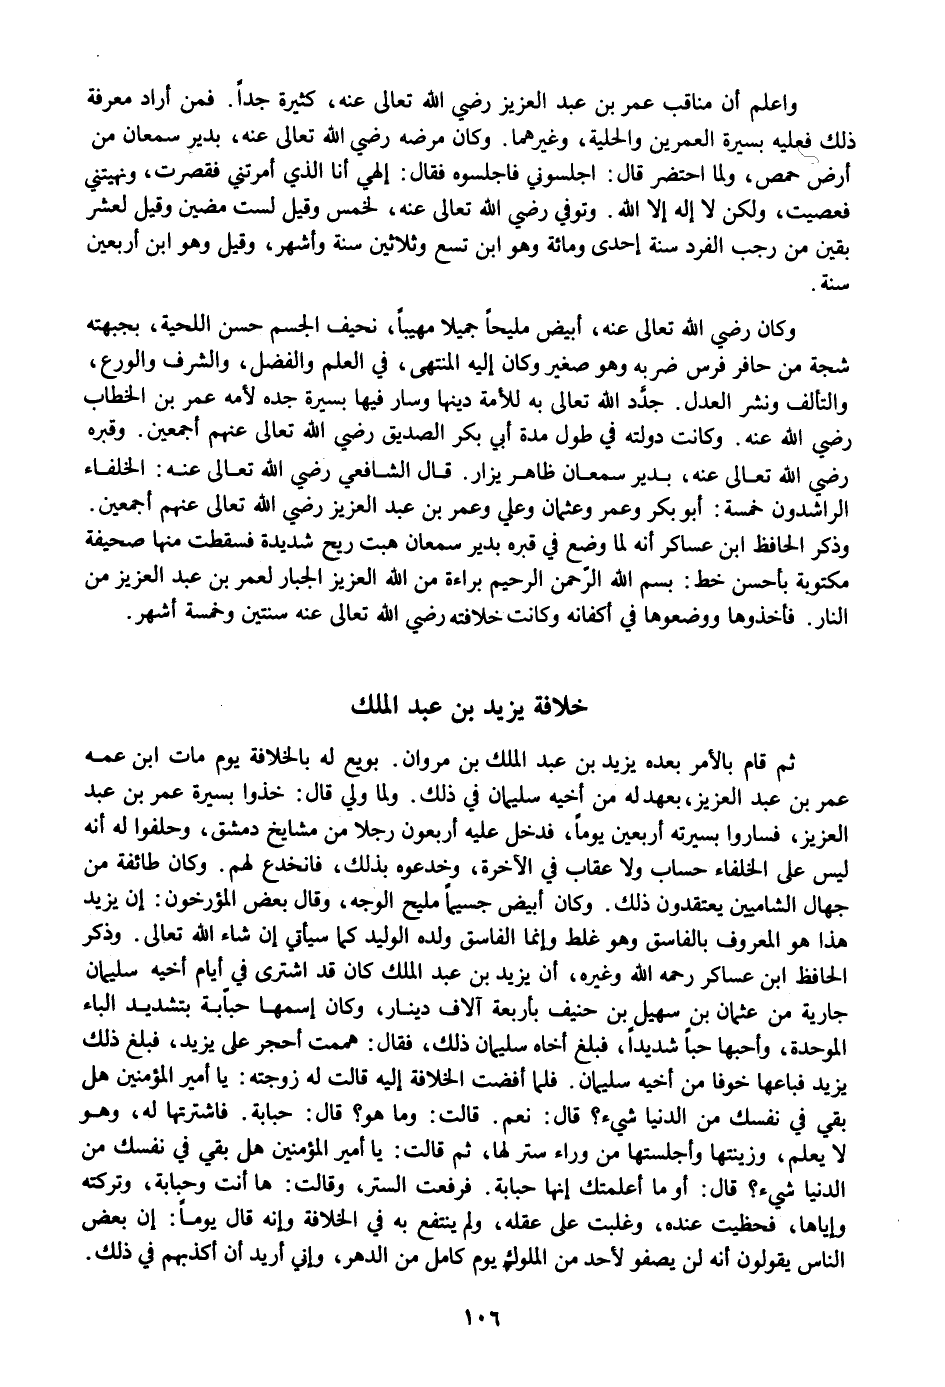 واعلم أن مناقب عمر بن عبد العزيز رضي الله تعالى عنه، كثيرة جداً. فمن أراد معرفة
ذلك فعليه بسيرة العمرين والحلية، وغيرهما. وكان مرضه رضي الله تعالى عنه، بدير سمعان من
أرض حمص، ولما احتضر قال: اجلسوني فاجلسوه فقال: إلهي أنا الذي أمرتني فقصرت، ونهيتني
فعصيت، ولكن لا إله إلا الله. وتوفي رضي الله تعالى عنه، لخمس وقيل لست مضين وقيل لعشر
بقين من رجب الفرد سنة إحدى ومائة وهو ابن تسع وثلاثين سنة وأشهر، وقيل وهو ابن أربعين
سنة.
وكان رضي الله تعالى عنه، أبيض مليحاً جميلا مهيباً، نحيف الجسم حسن اللحية، بجبهته
شجة من حافر فرس ضربه وهو صغير وكان إليه المنتهى، في العلم والفضل، والشرف والورع،
والتألف ونشر العدل. جدَّد الله تعالى به للأمة دينها وسار فيها بسيرة جده لأمه عمر بن الخطاب
رضي الله عنه. وكانت دولته في طول مدة أبي بكر الصديق رضي الله تعالى عنهم أجمعين. وقبره
رضي الله تعالى عنه، بدير سمعان ظاهر يزار. قال الشافعي رضي الله تعالى عنه: الخلفاء
الراشدون خمسة: أبو بكر وعمر وعثمان وعلي وعمر بن عبد العزيز رضي الله تعالى عنهم أجمعين.
وذكر الحافظ ابن عساكر أنه لما وضع في قبره بدير سمعان هبت ريح شديدة فسقطت منها صحيفة
مكتوبة بأحسن خط: بسم الله الرّحمن الرحيم براءة من الله العزيز الجبار لعمر بن عبد العزيز من
النار. فأخذوها ووضعوها في أكفانه وكانت خلافته رضي الله تعالى عنه سنتين وخمسة أشهر.
خلافة يزيد بن عبد الملك
ثم قام بالأمر بعده يزيد بن عبد الملك بن مروان. بويع له بالخلافة يوم مات ابن عمه
عمر بن عبد العزيز، بعهد له من أخيه سليمان في ذلك. ولما ولي قال: خذوا بسيرة عمر بن عبد
العزيز، فساروا بسيرته أربعين يوماً، فدخل عليه أربعون رجلا من مشايخ دمشق، وحلفوا له أنه
ليس على الخلفاء حساب ولا عقاب في الآخرة، وخدعوه بذلك، فانخدع لهم. وكان طائفة من
جهال الشاميين يعتقدون ذلك. وكان أبيض جسيماً مليح الوجه، وقال بعض المؤرخون: إن يزيد
هذا هو المعروف بالفاسق وهو غلط وإنما الفاسق ولده الوليد كما سيأتي إن شاء الله تعالى. وذكر
الحافظ ابن عساكر رحمه الله وغيره، أن يزيد بن عبد الملك كان قد اشترى في أيام أخيه سليمان
جارية من عثمان بن سهيل بن حنيف بأربعة آلاف دينار، وكان إسمها حبّابة بتشديد الباء
الموحدة، وأحبها حباً شديداً، فبلغ أخاه سليمان ذلك، فقال: هممت أحجر على يزيد، فبلغ ذلك
يزيد فباعها خوفا من أخيه سليمان. فلما أفضت الخلافة إليه قالت له زوجته: يا أمير المؤمنين هل
بقي في نفسك من الدنيا شيء؟ قال: نعم. قالت: وما هو؟ قال: حبابة. فاشترتها له، وهو
لا يعلم، وزينتها وأجلستها من وراء ستر لها، ثم قالت: يا أمير المؤمنين هل بقي في نفسك من
الدنيا شيء؟ قال: أو ما أعلمتك إنها حبابة. فرفعت الستر، وقالت: ها أنت وحبابة، وتركته
وإياها، فحظيت عنده، وغلبت على عقله، ولم ينتفع به في الخلافة وإنه قال يوماً: إن بعض
الناس يقولون أنه لن يصفو لأحد من الملوك يوم كامل من الدهر، وإني أريد أن أكذبهم في ذلك.
١٠٦